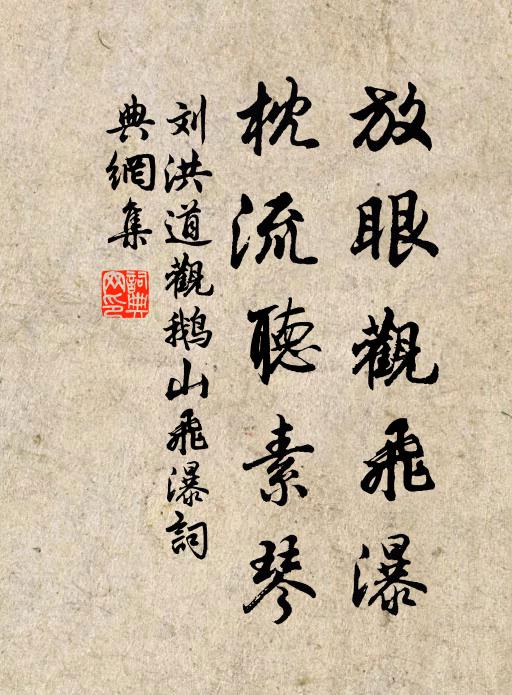 放眼觀飛瀑
枕流聽素琴
刘洪道觀鹅山飛瀑詞
典網集
詞典网印